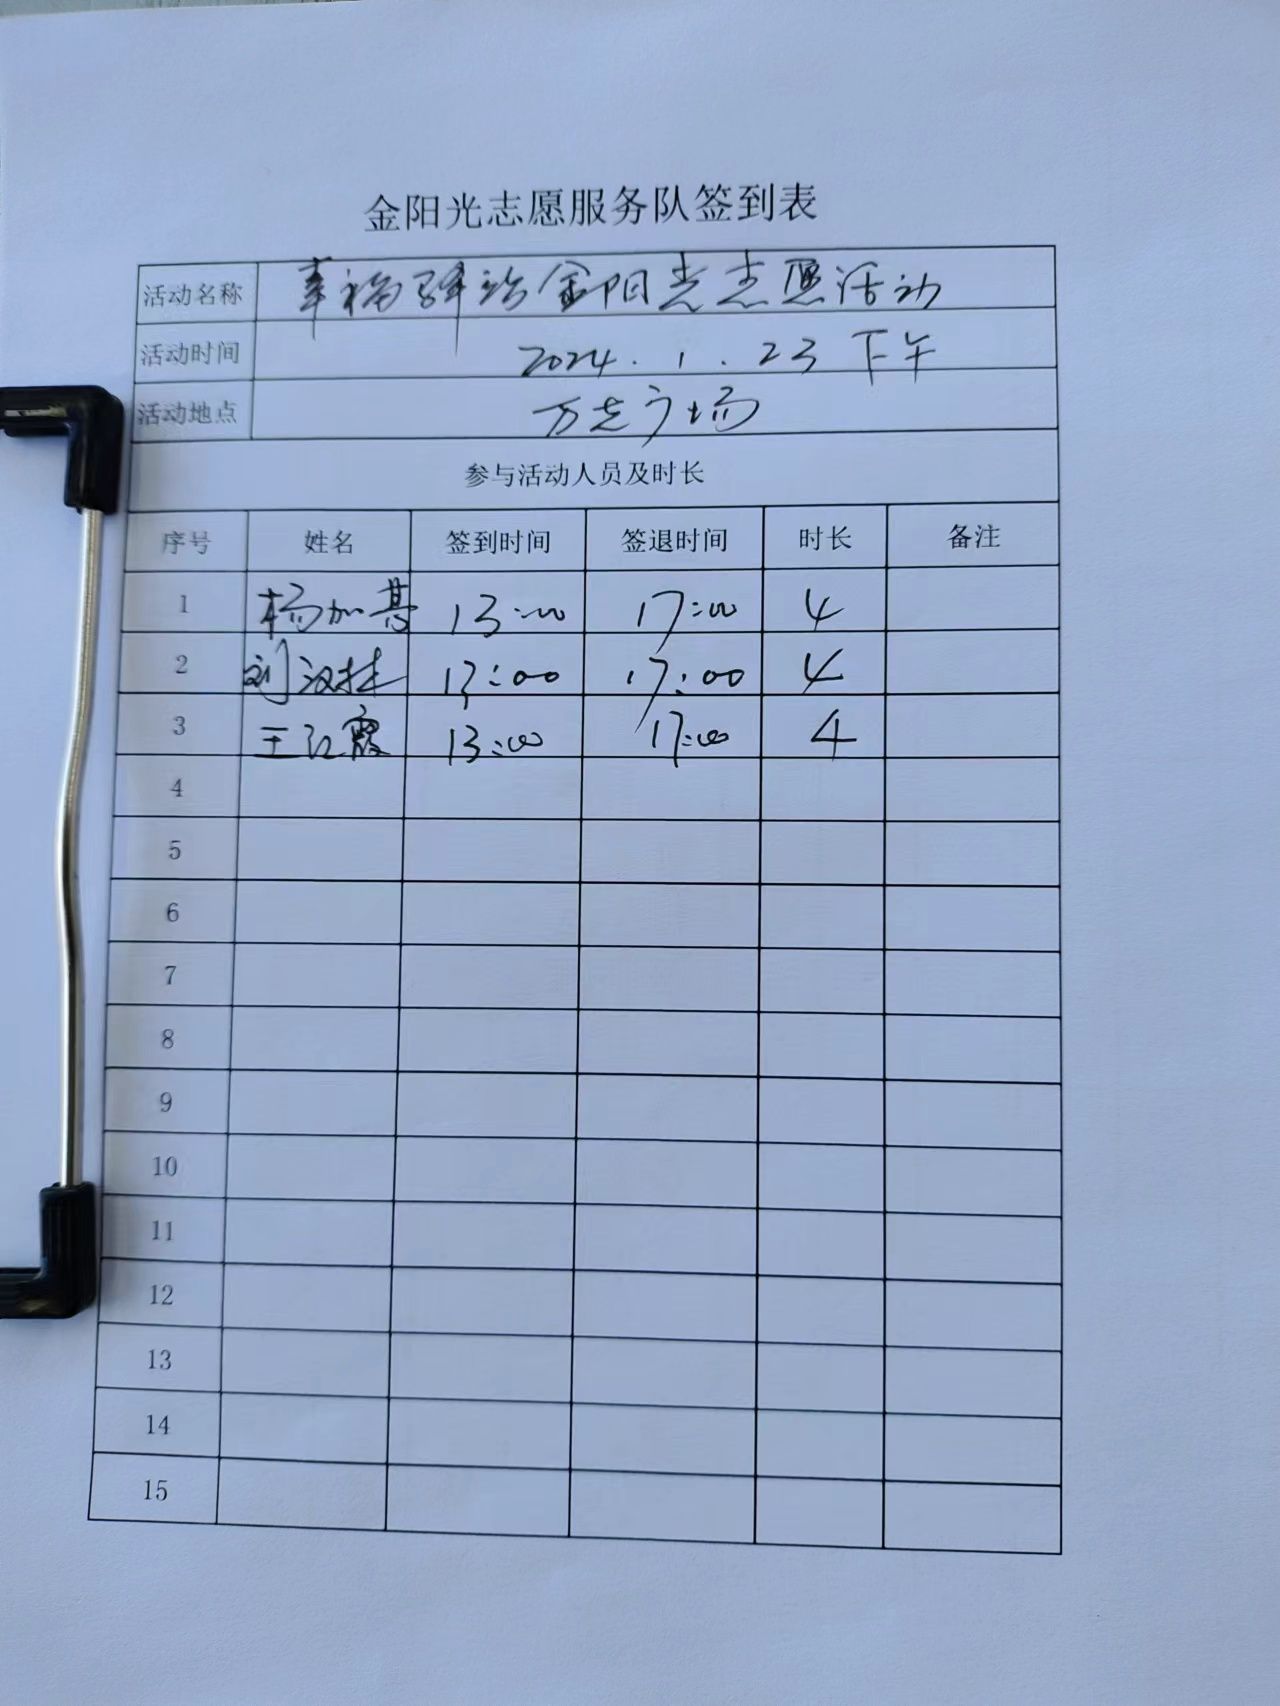 金阳光志愿服务队签到表
活动名称 幸福驿站金阳光志愿活动
活动时间 2024.1.23 下午
活动地点 万达广场
参与活动人员及时长
序号 姓名 签到时间 签退时间 时长 备注
1 杨加其 13:00 17:00 4
2 刘汉 13:00 17:00 4
3 王红霞 13:00 17:00 4
4
5
6
7
8
9
10
11
12
13
14
15